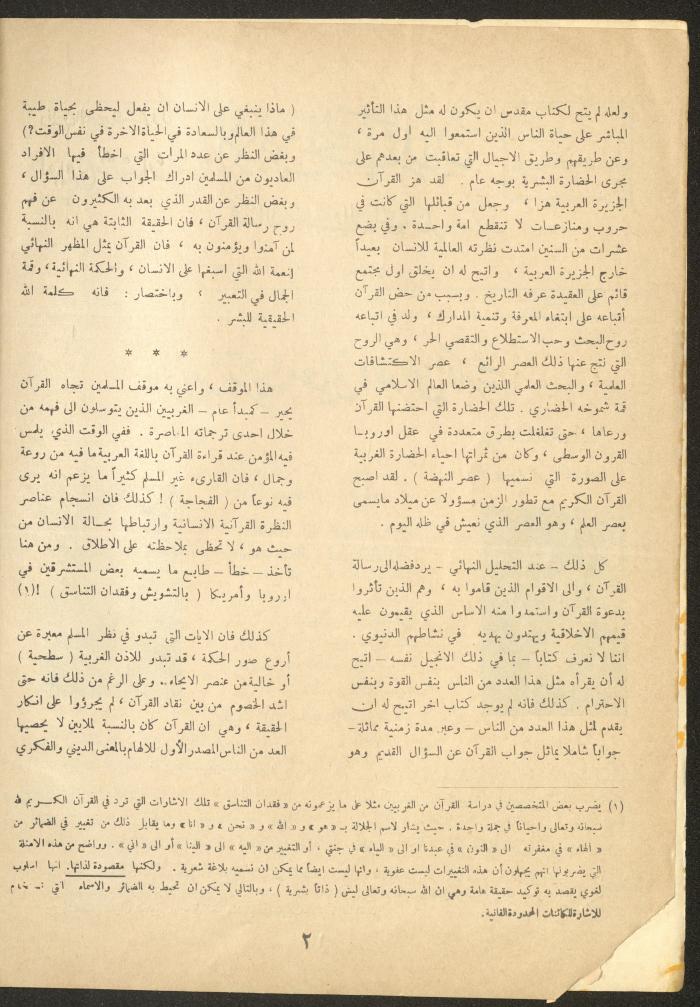 ولعله لم يتح لكتاب مقدس ان يكون له مثل هذا التأثير
المباشر على حياة الناس الذين استمعوا اليه اول مرة ،
وعن طريقهم وطريق الاجيال التي تعاقبت من بعدهم على
مجرى الحضارة البشرية بوجه عام . لقد هز القرآن
الجزيرة العربية هزا ، وجعل من قبائلها التي كانت في
حروب ومنازعات لا تنقطع امة واحدة . وفي بضع
عشرات من السنين امتدت نظرته العالمية للانسان بعيداً
خارج الجزيرة العربية ، واتيح له ان يخلق اول مجتمع
قائم على العقيدة عرفه التاريخ . وبسبب من حض القرآن
أتباعه على ابتغاء المعرفة وتنمية المدارك ، ولد في اتباعه
روح البحث وحب الاستطلاع والتقصي الحر ، وهي الروح
التي نتج عنها ذلك العصر الرائع ، عصر الاكتشافات
العلمية ، والبحث العلمي اللذين وضعا العالم الاسلامي في
قمة شموخه الحضاري . تلك الحضارة التي احتضنها القرآن
ورعاها ، حتى تغلغلت بطرق متعددة في عقل اوروبا
القرون الوسطى ، وكان من ثمراتها احياء الحضارة الغربية
على الصورة التي نسميها ( عصر النهضة ) . لقد اصبح
القرآن الكريم مع تطور الزمن مسؤولا عن ميلاد مايسمى
بعصر العلم ، وهو العصر الذي نعيش في ظله اليوم .
كل ذلك – عند التحليل النهائي – يرد فضله الى رسالة
القرآن ، والى الاقوام الذين قاموا به ، وهم الذين تأثروا
بدعوة القرآن واستمدوا منه الاساس الذي يقيمون عليه
قيمهم الاخلاقية ويهتدون بهديه في نشاطهم الدنيوي .
اننا لا نعرف كتاباً – بما في ذلك الانجيل نفسه – اتيح
له أن يقرأه مثل هذا العدد من الناس بنفس القوة وبنفس
الاحترام . كذلك فانه لم يوجد كتاب اخر اتيح له ان
يقدم لمثل هذا العدد من الناس – وعبر مدة زمنية مماثلة–
جواباً شاملا يماثل جواب القرآن عن السؤال القديم وهو
( ماذا ينبغي على الانسان ان يفعل ليحظى بحياة طيبة
في هذا العالم وبالسعادة في الحياة الاخرة في نفس الوقت؟)
وبغض النظر عن عدد المرات التي اخطأ فيها الافراد
العاديون من المسلمين ادراك الجواب على هذا السؤال ،
وبغض النظر عن القدر الذي بعد به الكثيرون عن فهم
روح رسالة القرآن ، فان الحقيقة الثابتة هي انه بالنسبة
لمن آمنوا ويؤمنون به ، فان القرآن يمثل المظهر النهائي
لنعمة الله التي اسبغها على الانسان ، والحكمة النهائية، وقمة
الجمال في التعبير ، وباختصار : فانه كلمة الله
الحقيقية للبشر .
* * *
هذا الموقف ، واعني به موقف المسلمين تجاه القرآن
يحير – كمبدأ عام – الغربيين الذين يتوسلون الى فهمه من
خلال احدى ترجماته المعاصرة . ففي الوقت الذي يلمس
فيه المؤمن عند قراءة القرآن باللغة العربية ما فيه من روعة
وجمال ، فان القارىء غير المسلم كثيراً ما يزعم انه يرى
فيه نوعاً من ( الفجاجة ) ! كذلك فان انسجام عناصر
النظرة القرآنية الانسانية وارتباطها بحالة الانسان من
حيث هو ، لا تحظى بملاحظته على الاطلاق . ومن هنا
تأخذ – خطأ – طابع ما يسميه بعض المستشرقين في
اوروبا وأمريكا ( بالتشويش وفقدان التناسق ) !(١)
كذلك فان الايات التي تبدو في نظر المسلم معبرة عن
أروع صور الحكمة ، قد تبدو للاذن الغربية ( سطحية )
أو خالية من عنصر الايحاء .. وعلى الرغم من ذلك فانه حتى
اشد الخصوم من بين نقاد القرآن ، لم يجرؤوا على انكار
الحقيقة ، وهي ان القرآن كان بالنسبة لملايين لا يحصيها
العد من الناس المصدر الأول للالهام بالمعنى الديني والفكري
(١) يضرب بعض المتخصصين في دراسة القرآن من الغربيين مثلا على ما يزعمونه من « فقدان التناسق » تلك الاشارات التي ترد في القرآن الكريم لله
سبحانه وتعالى واحياناً في جملة واحدة . حيث يشار لاسم الجلالة بـ « هو » و « الله » و « نحن » و « انا » وما يقابل ذلك من تغيير في الضمائر من
« الهاء » في مغفرته الى « النون » في عبدنا او الى « الياء » في جنتي ، أو التغيير من « اليه » الى « الينا » أو الى « الي » . وواضح من هذه الامثلة
التي يضربونها انهم يجهلون أن هذه التغييرات ليست عفوية ، وانها ليست ايضاً مما يمكن ان نسميه بلاغة شعرية . ولكنها مقصودة لذاتها. انها اسلوب
لغوي يقصد به توكيد حقيقة هامة وهي ان الله سبحانه وتعالى ليس ( ذاتاً بشرية ) ، وبالتالي لا يمكن ان تحيط به الضمائر والاسماء التي
للاشارة للكائنات المحدودة الفانية.
٢